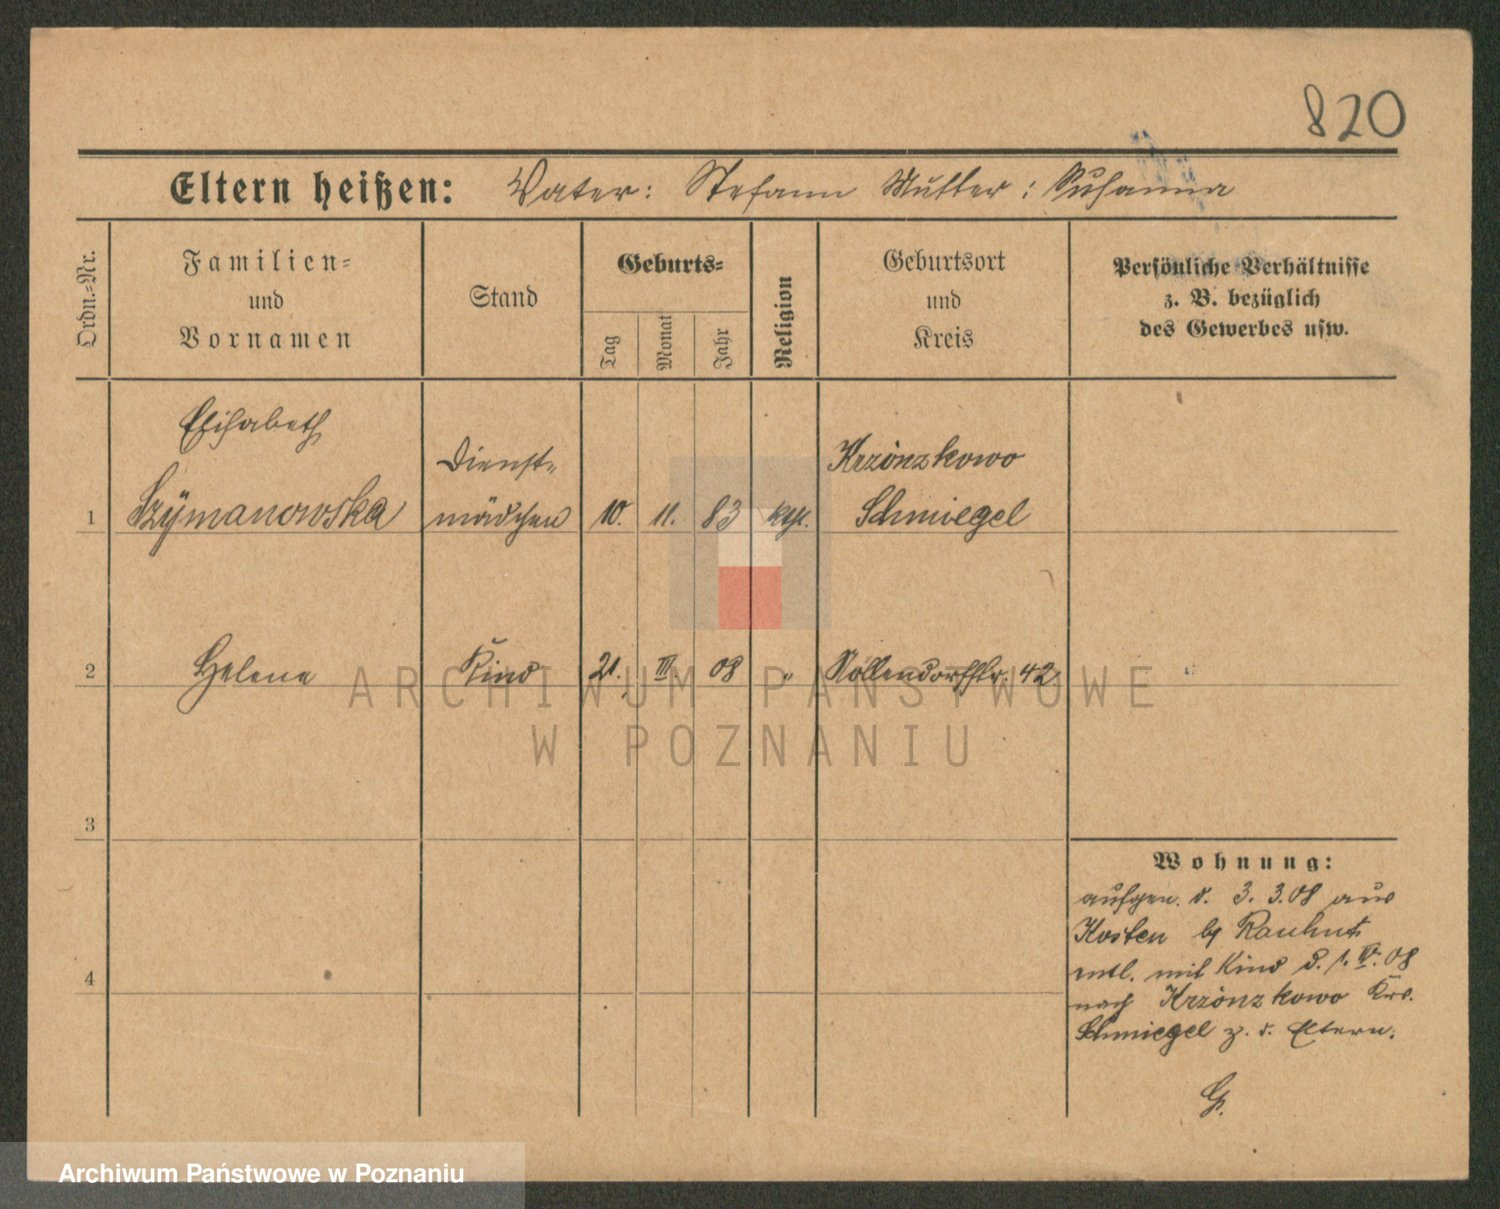 820
Eltern heißen: Vater: Stefann Mutter: Susanna
Ordn.-Nr.
Familien-
und
Vornamen
Stand
Geburts-
Tag
Monat
Jahr
Religion
Geburtsort
und
Kreis
Persönliche Verhältnisse
z. B. bezüglich
des Gewerbes usw.
Elisabeth
Dienst-
Krzonzkowo
1 Szymanowska mädchen 10. 11. 83 kth. Schmiegel
2 Helene Kind 21. III 08 " Nollendorfstr. 42
ARCHIWUM PAŃSTWOWE
W POZNANIU
3
4
Wohnung:
aufgen. d. 3. 3. 08 aus
Kosten by Rauhut
entl. mit Kind d. 1. IV. 08
nach Krzonzkowo Krs.
Schmiegel z. d. Eltern.
G.
Archiwum Państwowe w Poznaniu